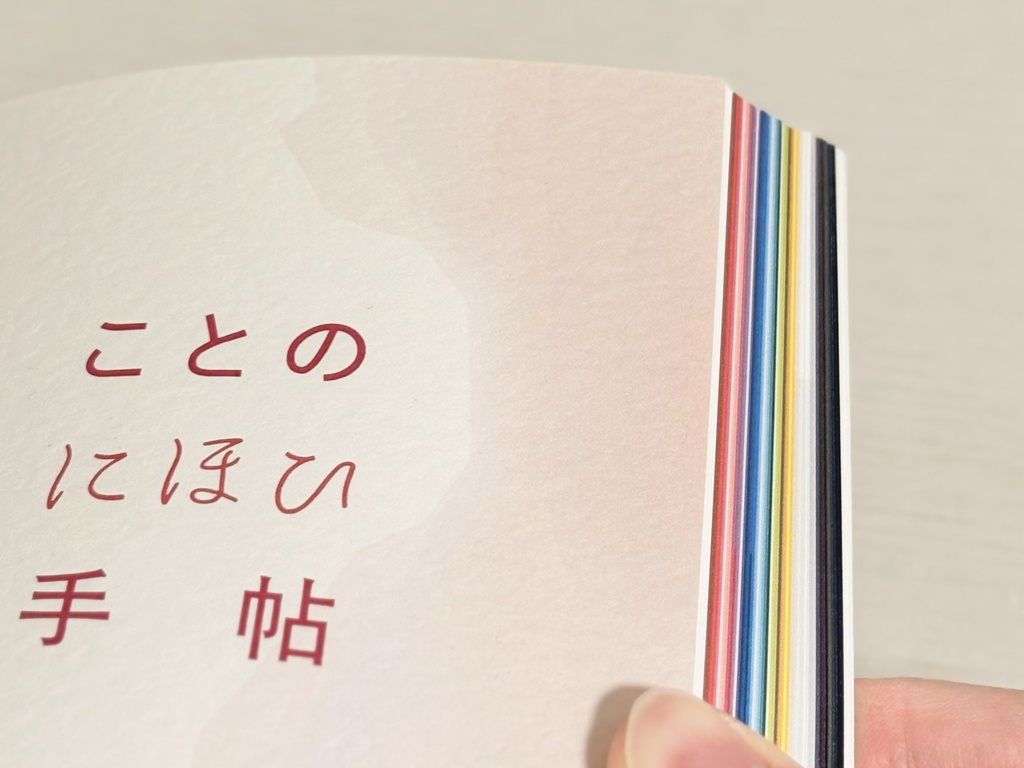 ことの
にほひ
手帖